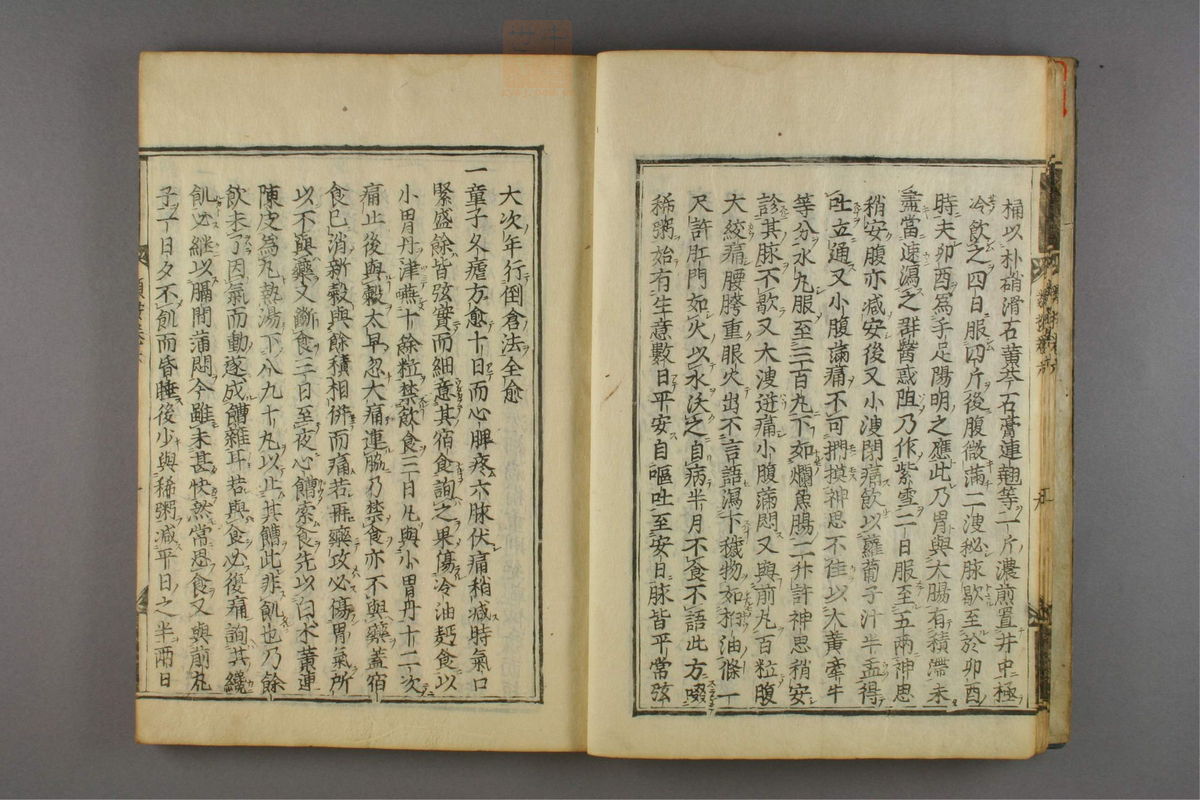 桶以朴硝滑石黄芩石膏連翹等一斤濃煎置井中極
冷飲之四日服四斤後腹微滿二溲秘脉歇至於卯酉
時夫卯酉為手足陽明之應此乃胃與大腸有積滯未
盡當速瀉之群醫惑阻乃作紫雪二日服至五兩神思
稍安腹亦减安後又小溲閉痛飲以蘿蔔子汁半盃得
吐立通又小腹滿痛不可捫摸神思不佳以大黄牽牛
等分水丸服至三百丸下如爛魚腸二升許神思稍安
診其脉不歇又大溲迸痛小腹滿悶又與前丸百粒腹
大絞痛腰胯重眼火出不言語瀉下穢物如油條一
尺許肛門如火以水沃之自病半月不食不語此方啜
稀粥始有生意數日平安自嘔吐至安日脉皆平常弦
大次年行倒倉法全愈
一童子久瘧方愈十日而心脾疼六脉伏痛稍减時氣口
緊盛餘皆弦實而細意其宿食詢之果傷冷油麪食以
小胃丹津嚥十餘粒禁飲食三日凡與小胃丹十二次
痛止後與穀太早忽大痛連脇乃禁食亦不與藥蓋宿
食已消新穀與餘積相併而痛若再藥攻必傷胃氣所
以不與藥又斷食三日至夜心饝索食先以白朮黄連
陳皮為丸熱湯下八九十丸以止其饝此非飢也乃餘
飲未了因氣而動遂成饝雜耳若與食必後痛詢其纔
飢必繼以膈間滿悶今雖未甚快然常思食又與前丸
子一日夕不飢而昏睡後少與稀粥减平日之半兩日